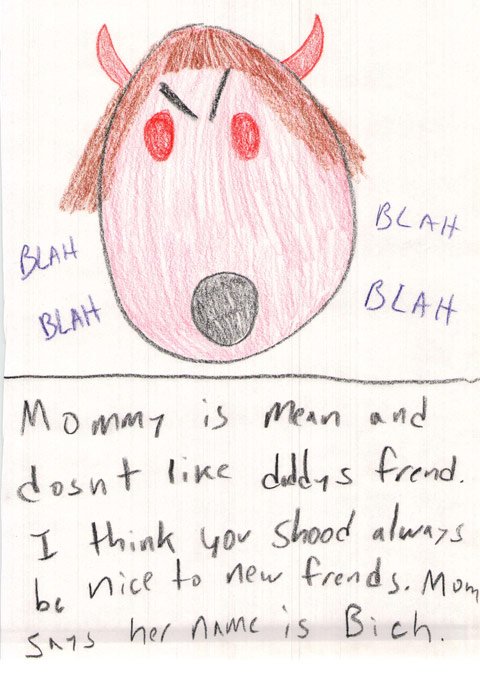 BLAH
BLAH
BLAH
BLAH
Mommy is Mean and
dosnt like daddys frend.
I think you shood always
be nice to new frends. Mom
says her name is Bich.